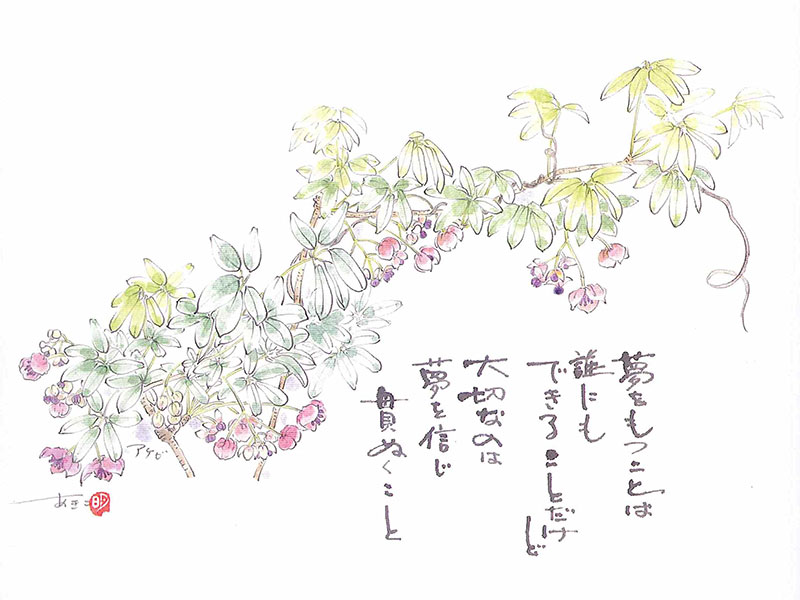 夢をもつことは
誰にも
できることだけど
大切なのは
夢を信じ
貫ぬくこと
アケビ
あきこ
明